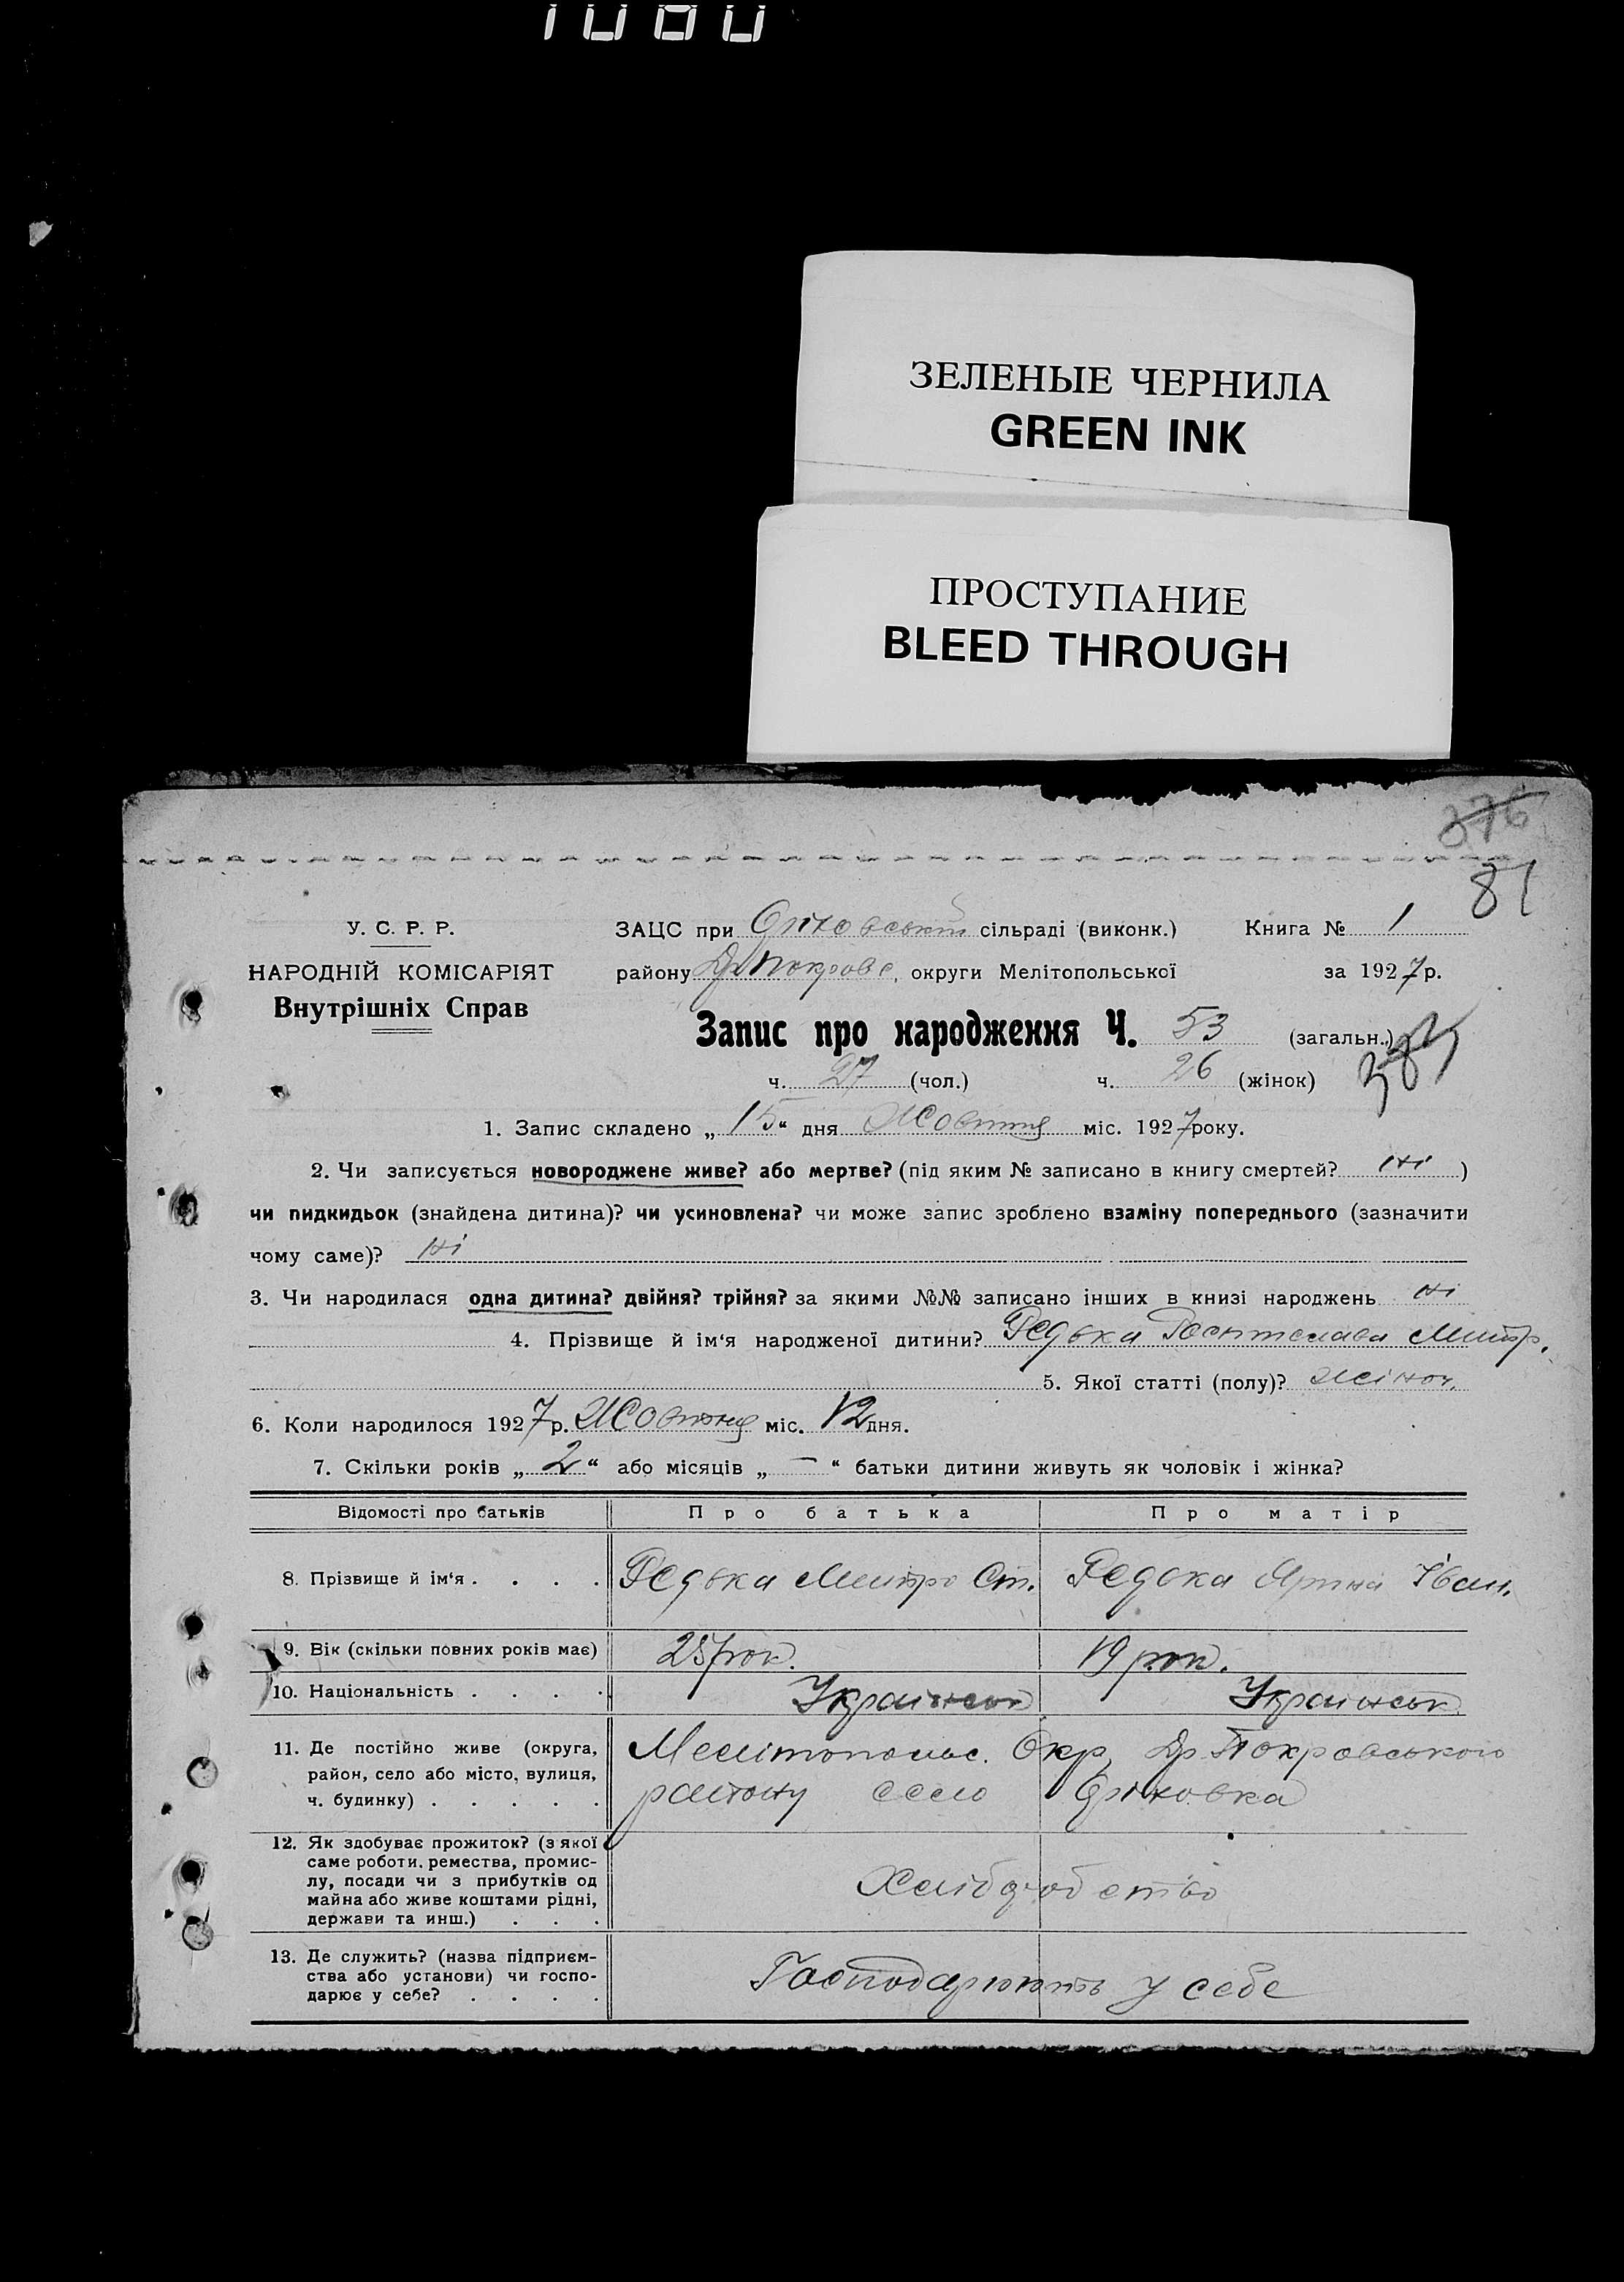 1080
ЗЕЛЕНЫЕ ЧЕРНИЛА
GREEN INK
ПРОСТУПАНИЕ
BLEED THROUGH
376
81
У. С. Р. Р.
НАРОДНІЙ КОМІСАРІЯТ
Внутрішніх Справ
ЗАЦС при сільраді (виконк.) Книга № 1
району Др Покровс, округи Мелітопольської за 1927 р.
Запис про народження Ч. 53 (загальн.)
ч. 27 (чол.) ч. 26 (жінок)
1. Запис складено „ 15 “ дня Жовтня міс. 1927 року.
2. Чи записується новороджене живе? або мертве? (під яким № записано в книгу смертей? ні )
чи пидкидьок (знайдена дитина)? чи усиновлена? чи може запис зроблено взаміну попереднього (зазначити
чому саме)? ні
3. Чи народилася одна дитина? двійня? трійня? за якими №№ записано інших в книзі народжень ні
4. Прізвище й ім‘я народженої дитини? Редька Митр.
5. Якої статті (полу)? жіноч.
6. Коли народилося 1927 р. Жовтня міс. 12 дня.
7. Скільки років „ 2 “ або місяців „ — “ батьки дитини живуть як чоловік і жінка?
Відомості про батьків Про батька Про матір
8. Прізвище й ім‘я . . . . Редька Митро Ст. Редька Ярина Іван.
9. Вік (скільки повних років має) 25 рок. 19 рок.
10. Національність . . . . Українськ Українськ
11. Де постійно живе (округа,
район, село або місто, вулиця,
ч. будинку) . . . . .
Мелітопольс. Окр, Др Покровського
району село
12. Як здобуває прожиток? (з якої
саме роботи, ремества, промис-
лу, посади чи з прибутків од
майна або живе коштами рідні,
держави та инш.) . . .
Хлібороbство
13. Де служить? (назва підприєм-
ства або установи) чи госпо-
дарює у себе? . . . .
Господарюють у себе